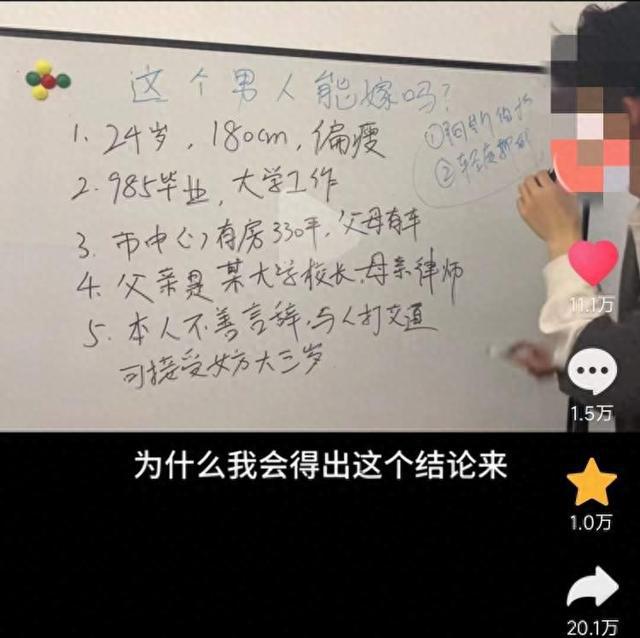 这个男人能嫁吗?
1. 24岁，180cm，偏瘦
①
②轻度
2. 985毕业，大学工作
3. 市中心有房330平，父母有车
4. 父亲是某大学校长，母亲律师
5. 本人不善言辞，与人打交道
可接受女方大三岁
为什么我会得出这个结论来
11.1万
1.5万
1.0万
20.1万